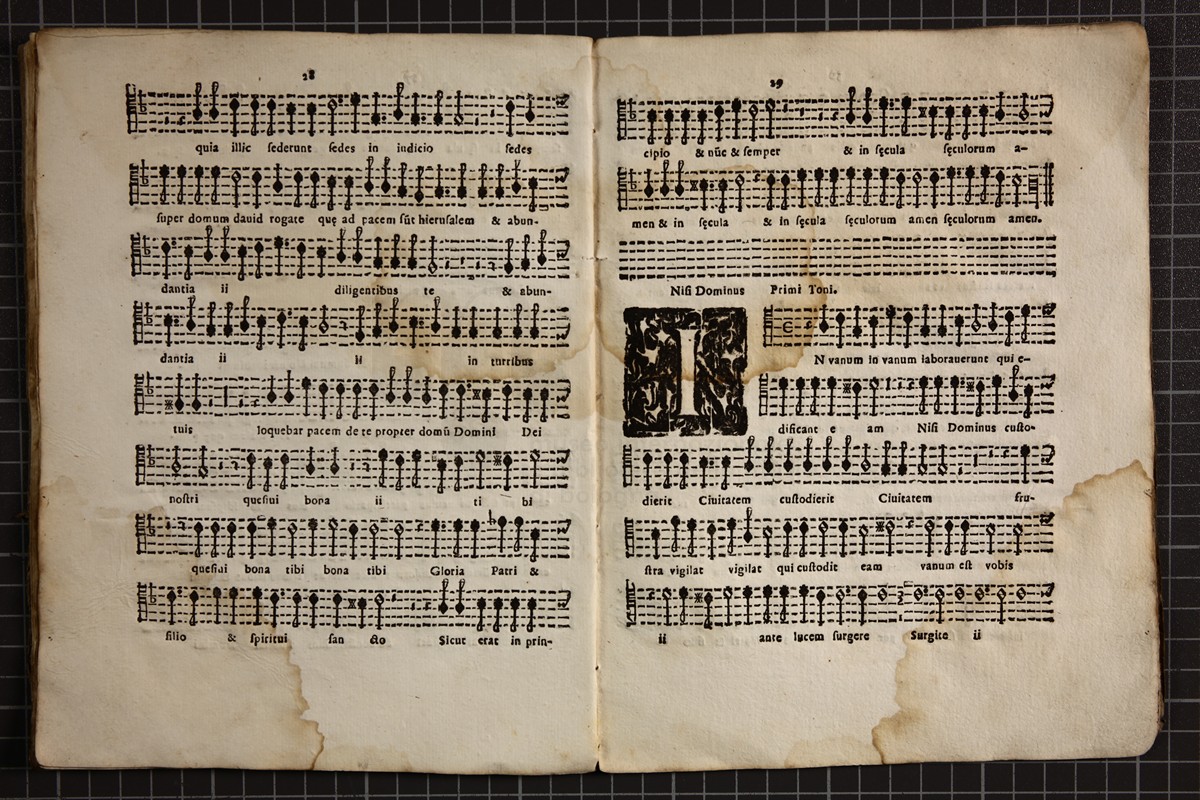 28
quia illic sederunt sedes in iudicio sedes
super domum dauid rogate quę ad pacem sūt hierusalem & abun-
dantia ii diligentibus te & abun-
dantia ii ii in turribus
tuis loquebar pacem de te propter domū Domini Dei
nostri quesiui bona ii ti bi
quesiui bona tibi bona tibi Gloria Patri &
filio & spiritui san cto Sicut erat in prin-
29
cipio & nūc & semper & in sęcula sęculorum a-
men & in sęcula & in sęcula sęculorum amen sęculorum amen.
Nisi Dominus Primi Toni.
IN vanum in vanum laborauerunt qui e-
dificant e am Nisi Dominus custo-
dierit Ciuitatem custodierit Ciuitatem fru-
stra vigilat vigilat qui custodit eam vanum est vobis
ii ante lucem surgere Surgite ii